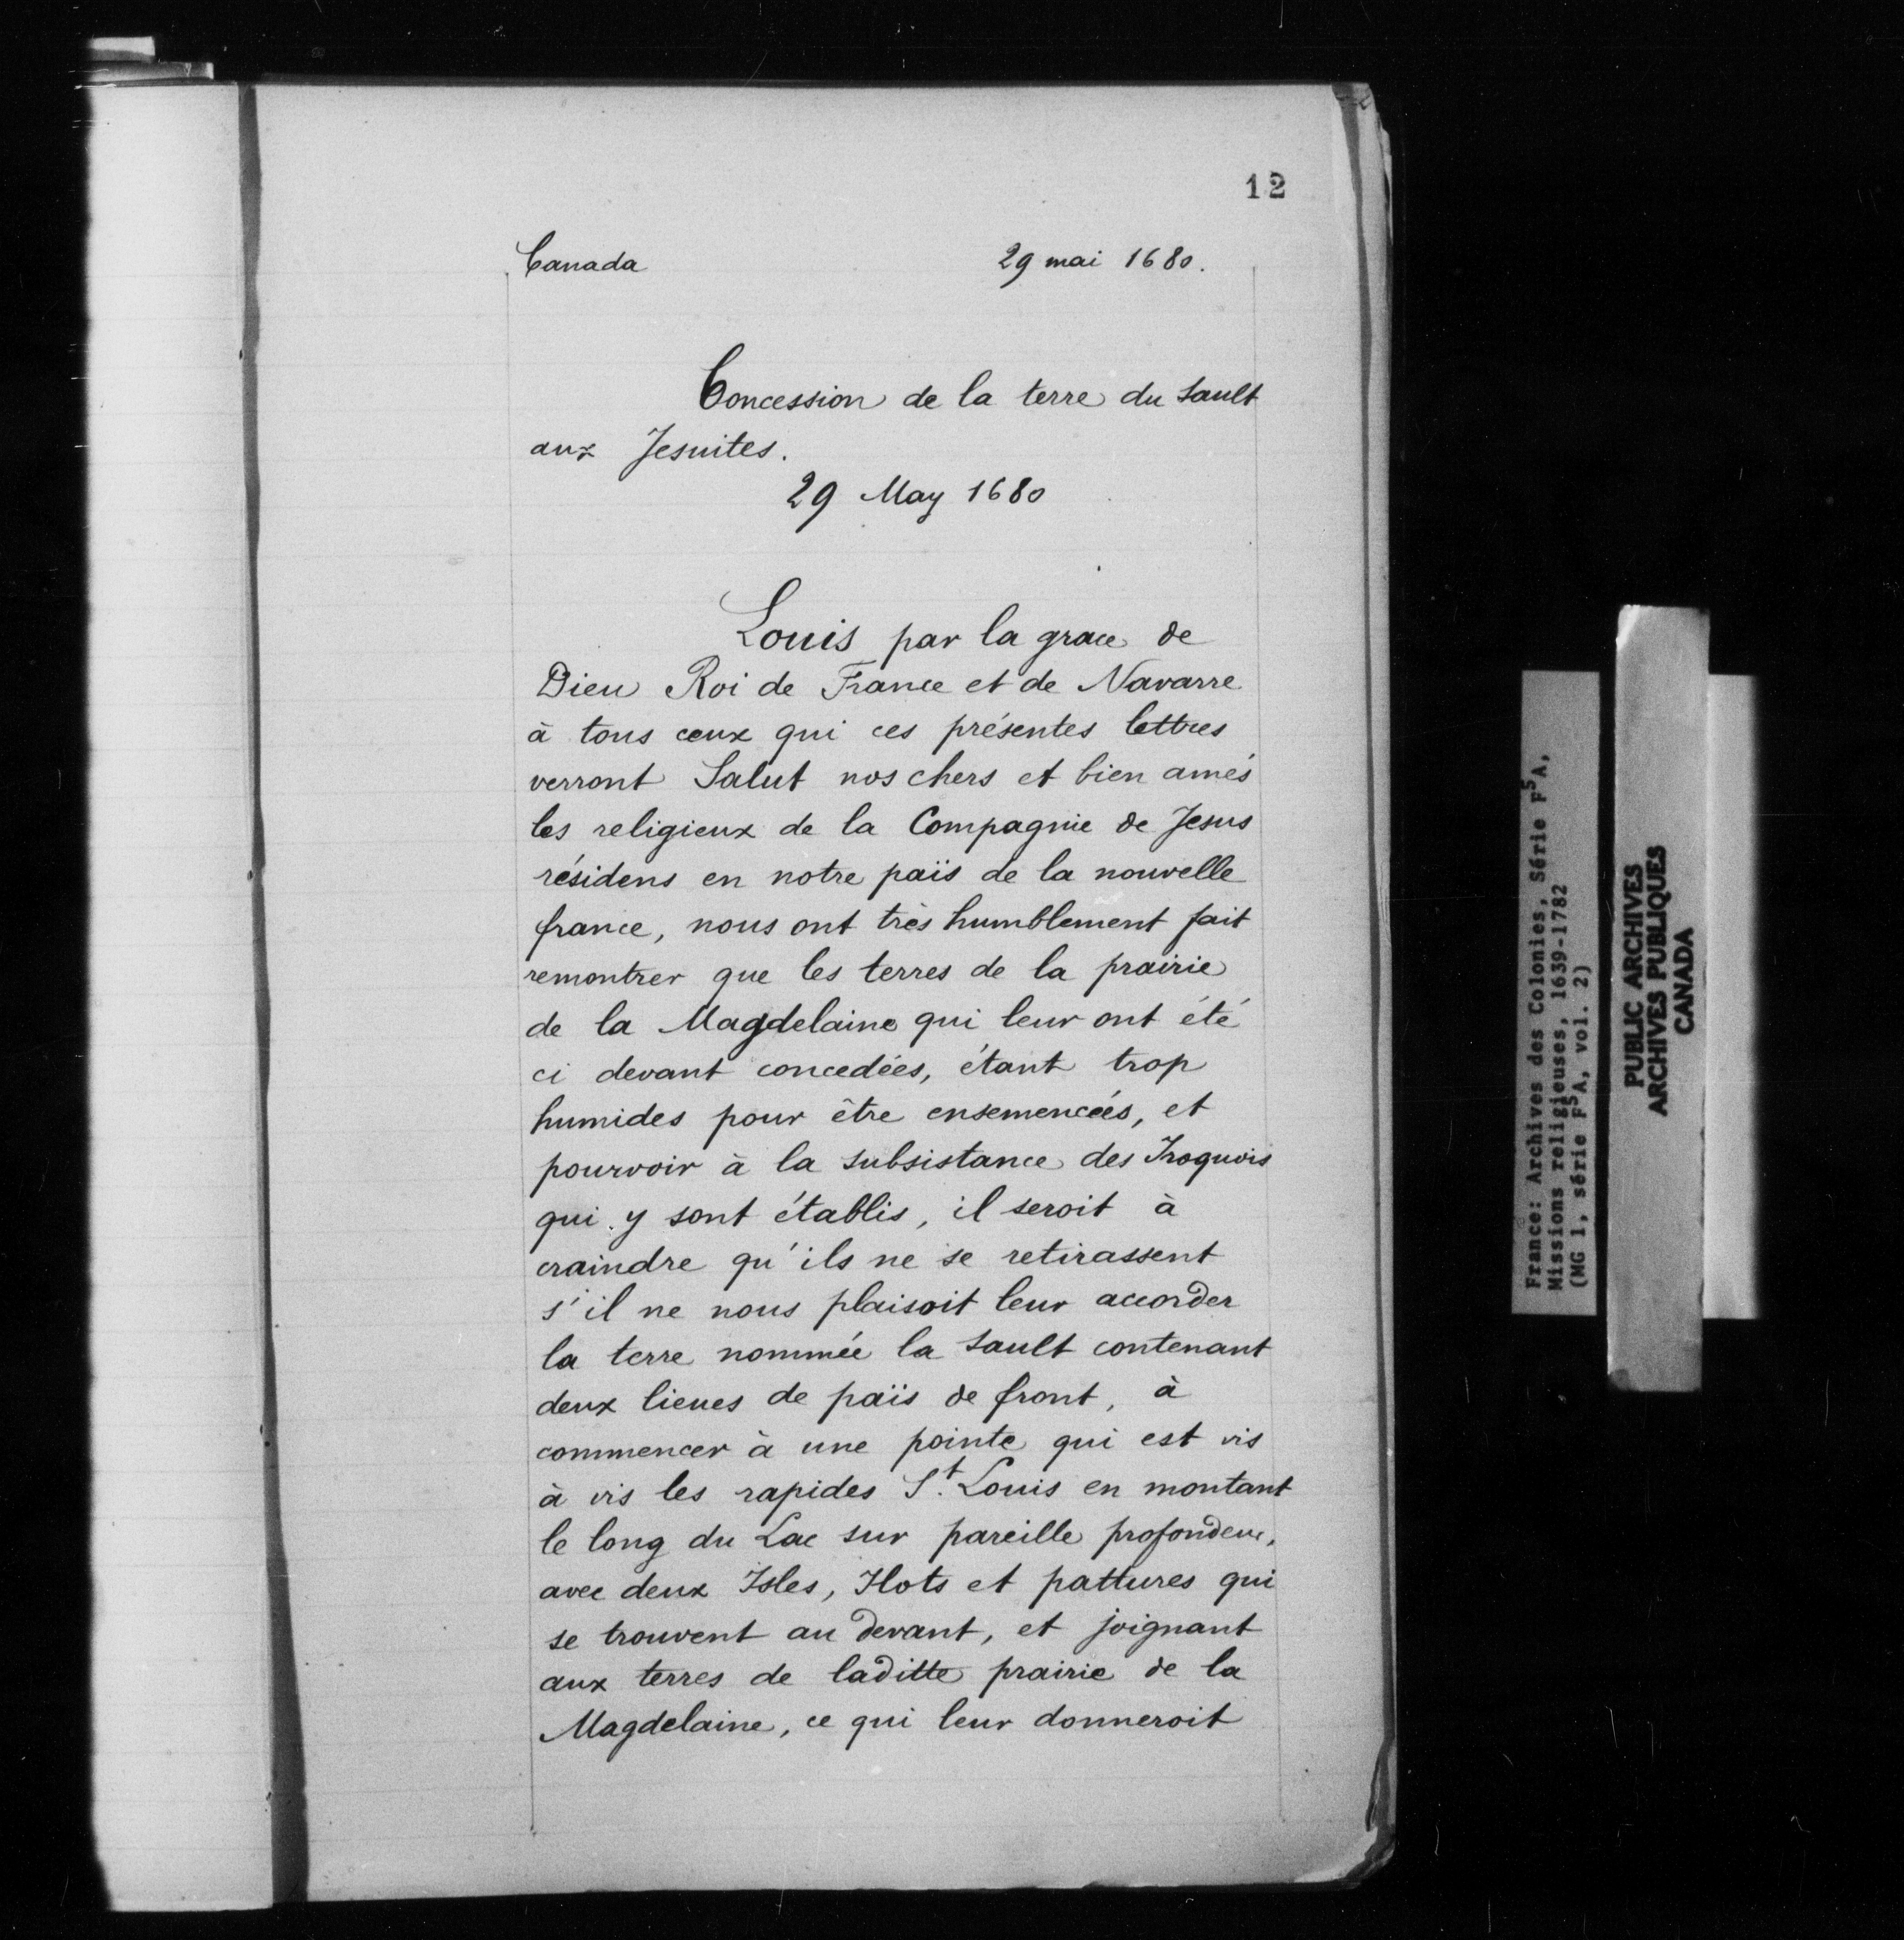 12
Canada 29 mai 1680.
Concession de la terre du Sault
aux Jesuites.
29 May 1680
Louis par la grace de
Dieu Roi de France et de Navarre
à tous ceux qui ces présentes lettres
verront Salut nos chers et bien amés
les religieux de la Compagnie de Jesus
résidens en notre païs de la nouvelle
france, nous ont très humblement fait
remontrer que les terres de la prairie
de la Magdelaine qui leur ont été
ci devant concedées, étant trop
humides pour être ensemencées, et
pourvoir à la subsistance des Iroquois
qui y sont établis, il seroit à
craindre qu'ils ne se retirassent
s'il ne nous plaisoit leur accorder
la terre nommée la Sault contenant
deux lieues de païs de front, à
commencer à une pointe qui est vis
à vis les rapides St. Louis en montant
le long du Lac sur pareille profondeur,
avec deux Isles, Ilots et pattures qui
se trouvent au devant, et joignant
aux terres de laditte prairie de la
Magdelaine, ce qui leur donneroit
France: Archives des Colonies, Série F5A,
Missions religieuses, 1639-1782
(MG 1, série F5A, vol. 2)
PUBLIC ARCHIVES
ARCHIVES PUBLIQUES
CANADA